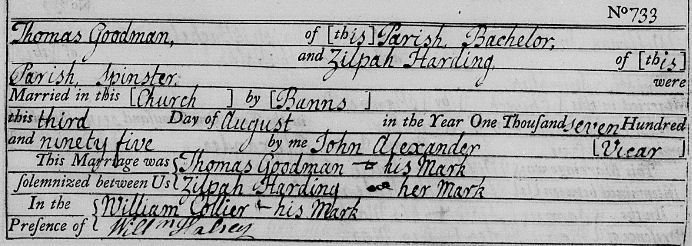 No 733
Thomas Goodman, of [this] Parish, Bachelor,
and Zilpah Harding of [this]
Parish, Spinster, were
Married in this [Church] by [Banns]
this third Day of August in the Year One Thousand seven Hundred
and ninety five by me John Alexander [Vicar]
This Marriage was { Thomas Goodman + his Mark
solemnized between Us { Zilpah Harding her Mark
In the { William Collier + his Mark
Presence of { Willm Halsey